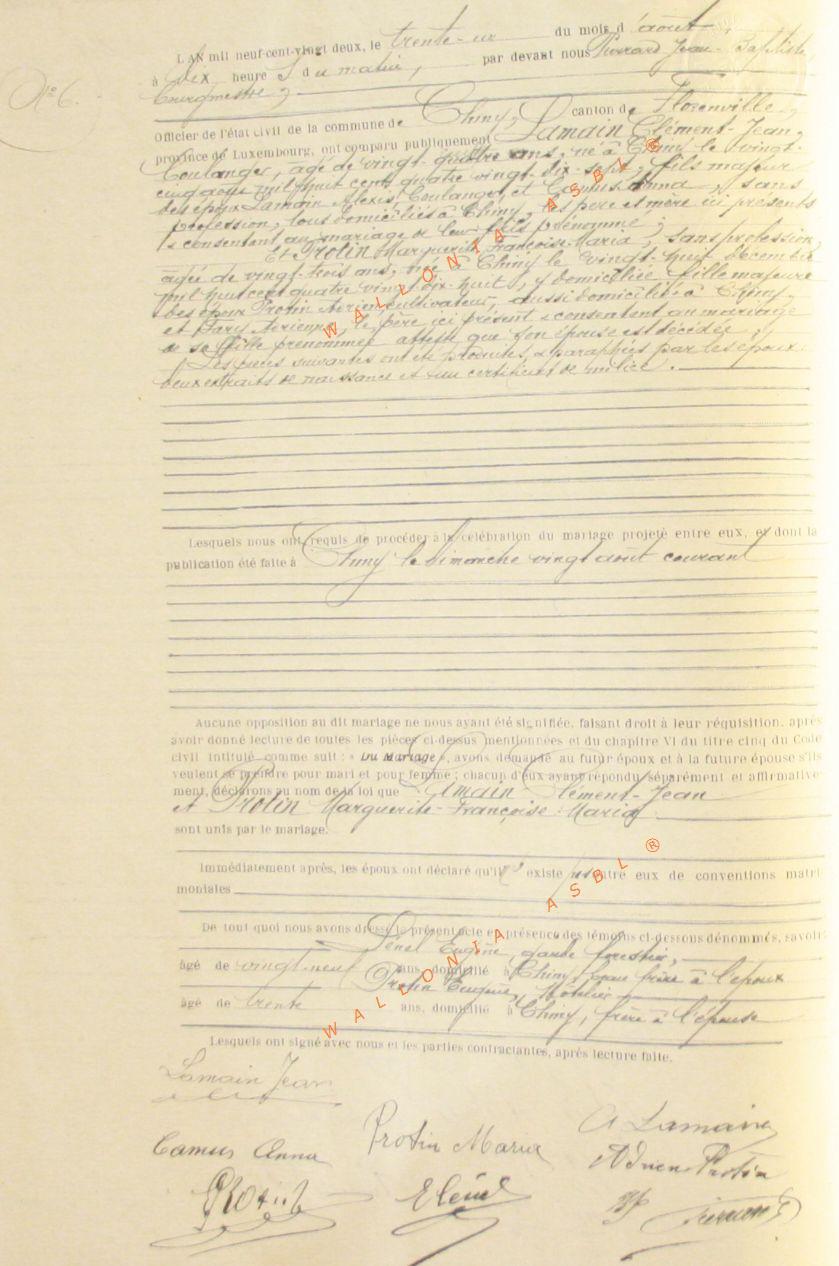 N° 6.
L'AN mil neuf-cent-vingt deux, le trente-un du mois d'août,
à dix heures du matin, par devant nous Pierrard Jean-Baptiste
bourgmestre,
Officier de l'état civil de la commune de Chiny, canton de Florenville,
province de Luxembourg, ont comparu publiquement Lamain Clément-Jean,
boulanger, âgé de vingt-quatre ans, né à Chiny le vingt-
cinq août mil huit cent quatre vingt dix-sept, fils majeur
des époux Lamain Alexis, boulanger, et Camus Anna, sans
profession, tous domiciliés à Chiny, les père et mère ici présents
consentent au mariage de leur fils prénommé;
Et Protin Marguerite Françoise Maria, sans profession,
âgée de vingt-trois ans, née à Chiny le vingt-huit décembre
mil huit cent quatre vingt dix-huit, y domiciliée fille majeure
des époux Protin cultivateur, aussi domicilié à Chiny,
et le père ici présent & consentent au mariage
de sa fille prénommée atteste que son épouse est décédée;
Les pièces suivantes ont été produites, & paraphées par les époux:
deux extraits de naissance et un certificat de milice.
Lesquels nous ont requis de procéder à la célébration du mariage projeté entre eux, et dont la
publication été faite à Chiny le dimanche vingt août courant
Aucune opposition au dit mariage ne nous ayant été signifiée, faisant droit à leur réquisition, après
avoir donné lecture de toutes les pièces ci-dessus mentionnées et du chapitre VI du titre cinq du Code
civil intitulé comme suit : « Du Mariage », avons demandé au futur époux et à la future épouse s'ils
veulent se prendre pour mari et pour femme ; chacun d'eux ayant répondu séparément et affirmative-
ment, déclarons au nom de la loi que Lamain Clément-Jean
et Protin Marguerite-Françoise-Maria
sont unis par le mariage.
Immédiatement après, les époux ont déclaré qu'il n' existe pas entre eux de conventions matri
moniales
De tout quoi nous avons dressé le présent acte en présence des témoins ci-dessous dénommés, savoir:
Eugène, garde forestier,
âgé de vingt-neuf ans, domicilié à Chiny, beau frère à l'époux
Protin Eugène, hôtelier
âgé de trente ans, domicilié à Chiny, frère à l'épouse
Lesquels ont signé avec nous et les parties contractantes, après lecture faite.
Lamain Jean
Camus Anna Protin Maria A Lamain
Adrien Protin
Protin
WALLONIA ASBL ®
WALLONIA ASBL ®